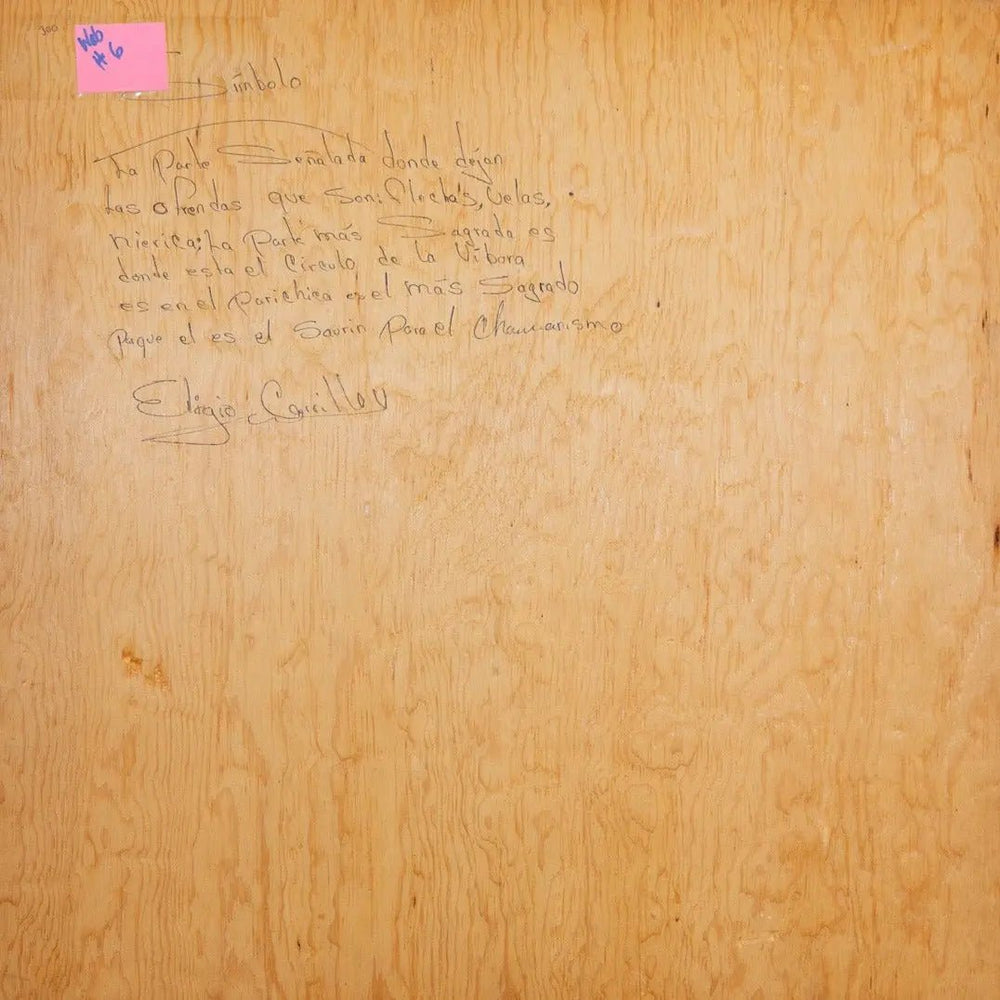 300
Web
# 6
Símbolo
La Parte Señalada donde dejan
Las ofrendas que son: flecha's, velas,
nierica; La Parte más Sagrada es
donde esta el Círculo de la Víbora
es en el Parichica es el más Sagrado
paque el es el Saurin Para el Chamanismo
Eligio Carrillo V